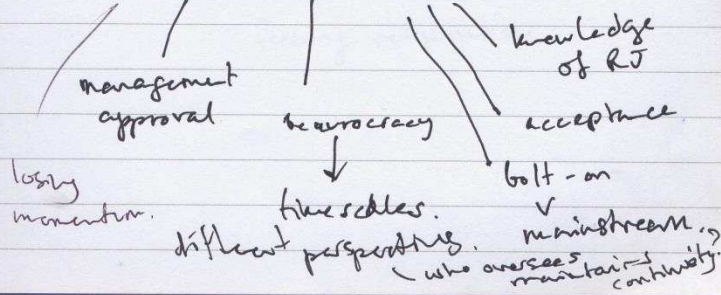 knowledge
of RJ
management
approval
beaurocracy
acceptance
losing
momentum.
timescales.
different perspectives.
bolt-on
v
mainstream.
(who oversees
maintains
continuity?